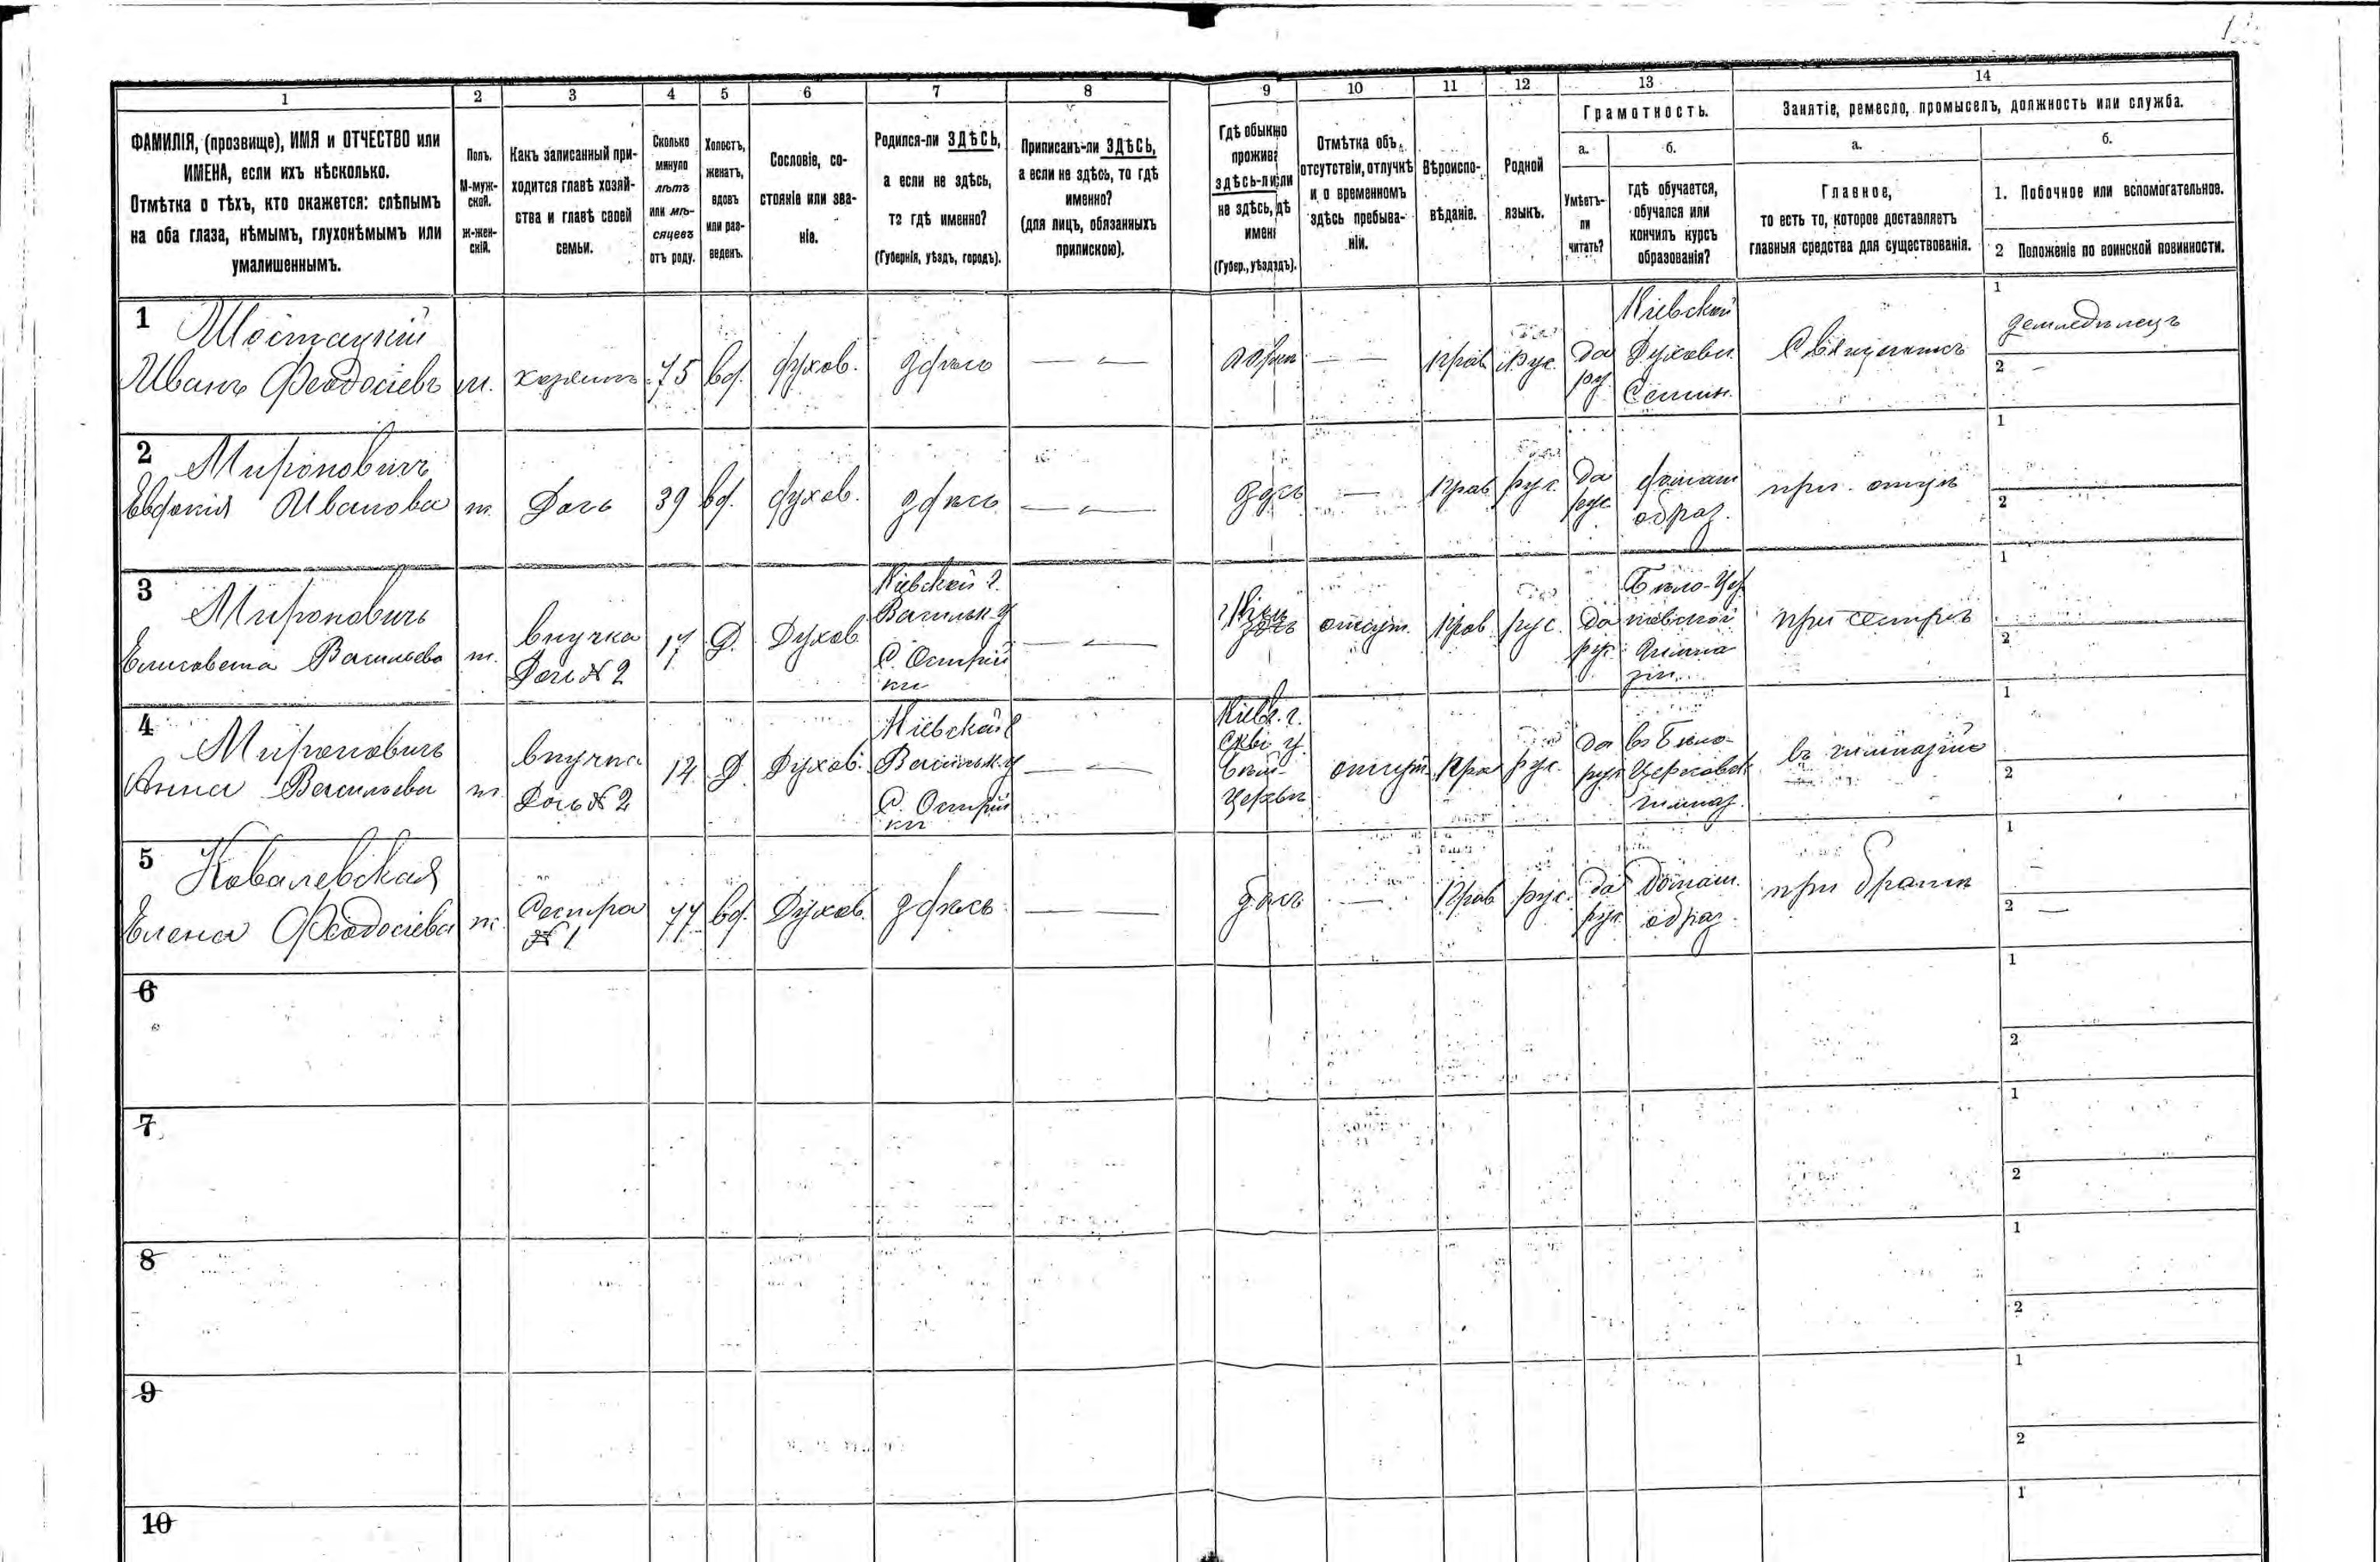 1
2
3
4
5
6
7
8
9
10
11
12
13
14
ФАМИЛІЯ, (прозвище), ИМЯ и ОТЧЕСТВО или
ИМЕНА, если ихъ нѣсколько.
Отмѣтка о тѣхъ, кто окажется: слѣпымъ
на оба глаза, нѣмымъ, глухонѣмымъ или
умалишеннымъ.
Полъ.
М-муж-
ской.
ж-жен-
скій.
Какъ записанный при-
ходится главѣ хозяй-
ства и главѣ своей
семьи.
Сколько
минуло
лѣтъ
или мѣ-
сяцевъ
отъ роду.
Холостъ,
женатъ,
вдовъ
или раз-
веденъ.
Сословіе, со-
стояніе или зва-
ніе.
Родился-ли ЗДѢСЬ,
а если не здѣсь,
то гдѣ именно?
(Губернія, уѣздъ, городъ).
Приписанъ-ли ЗДѢСЬ,
а если не здѣсь, то гдѣ
именно?
(для лицъ, обязанныхъ
припискою).
Гдѣ обыкно
прожив
здѣсь-ли
не здѣсь,
имен
(Губер., уѣздъ).
Отмѣтка объ
отсутствіи, отлучкѣ
и о временномъ
здѣсь пребыва-
ніи.
Вѣроиспо-
вѣданіе.
Родной
языкъ.
Грамотность.
а.
Умѣетъ-
ли
читать?
б.
гдѣ обучается,
обучался или
кончилъ курсъ
образованія?
Занятіе, ремесло, промыселъ, должность или служба.
а.
Главное,
то есть то, которое доставляетъ
главныя средства для существованія.
б.
1. Побочное или вспомогательное.
2 Положеніе по воинской повинности.
1
Шостацкій
Иванъ Феодосіевъ
м.
хозяинъ
75
вд.
духов.
здѣсь
— —
здѣсь
— —
прав
рус.
да
рус
Кіевской
Духовн.
Семин.
Священникъ
1
земледѣлецъ
2 —
2
Мироновичъ
Евдокія Иванова
ж.
Дочь
39
вд.
духов.
здѣсь
— —
здѣсь
—
прав
рус.
да
рус
домаш
образ.
при отцѣ
1
2
3
Мироновичъ
Елисавета Васильева
ж.
внучка
Дочь № 2
17
Д.
Духов
Кіевской г.
Васильк. у
С. Острій
ки
— —
здѣсь
отсут.
Прав
рус.
да
рус
Бѣло-Цер
ковской
Гимна
зіи
при сестрѣ
1
2
4
Мироновичъ
Анна Васильева
ж.
внучка
Дочь № 2
12
Д.
Духов.
Кіевской г
Васильк. у
С. Острій
ки
— —
Кіевс. г.
Скви у.
Бѣл-
Церкви
отсут
Пра
рус.
да
рус
въ Бѣло-
Церковск
гимназ.
въ гимназіи
1
2
5
Ковалевская
Елена Феодосіева
ж.
Сестра
№ 1
77
вд.
Духов.
здѣсь
— —
здѣсь
—
Прав
рус.
да
рус
Домаш.
образ.
при братѣ
1
—
2 —
6
1
2
7
1
2
8
1
2
9
1
2
10
1